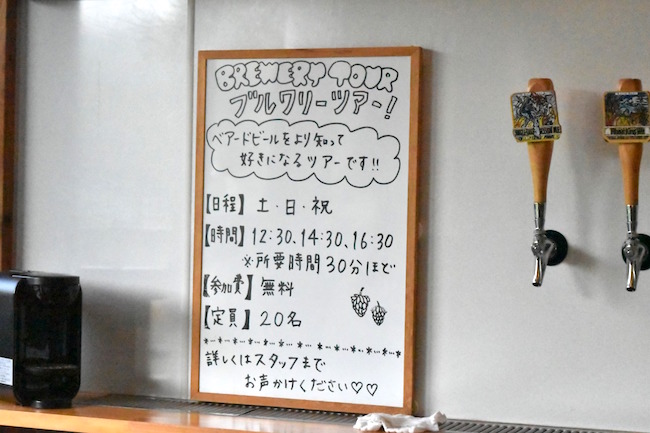 BREWERY TOUR
ブルワリーツアー!
ベアードビールをより知って
好きになるツアーです!!
【日程】土・日・祝
【時間】12:30、14:30、16:30
※所要時間30分ほど
【参加費】無料
【定員】20名
詳しくはスタッフまで
お声かけください♡♡